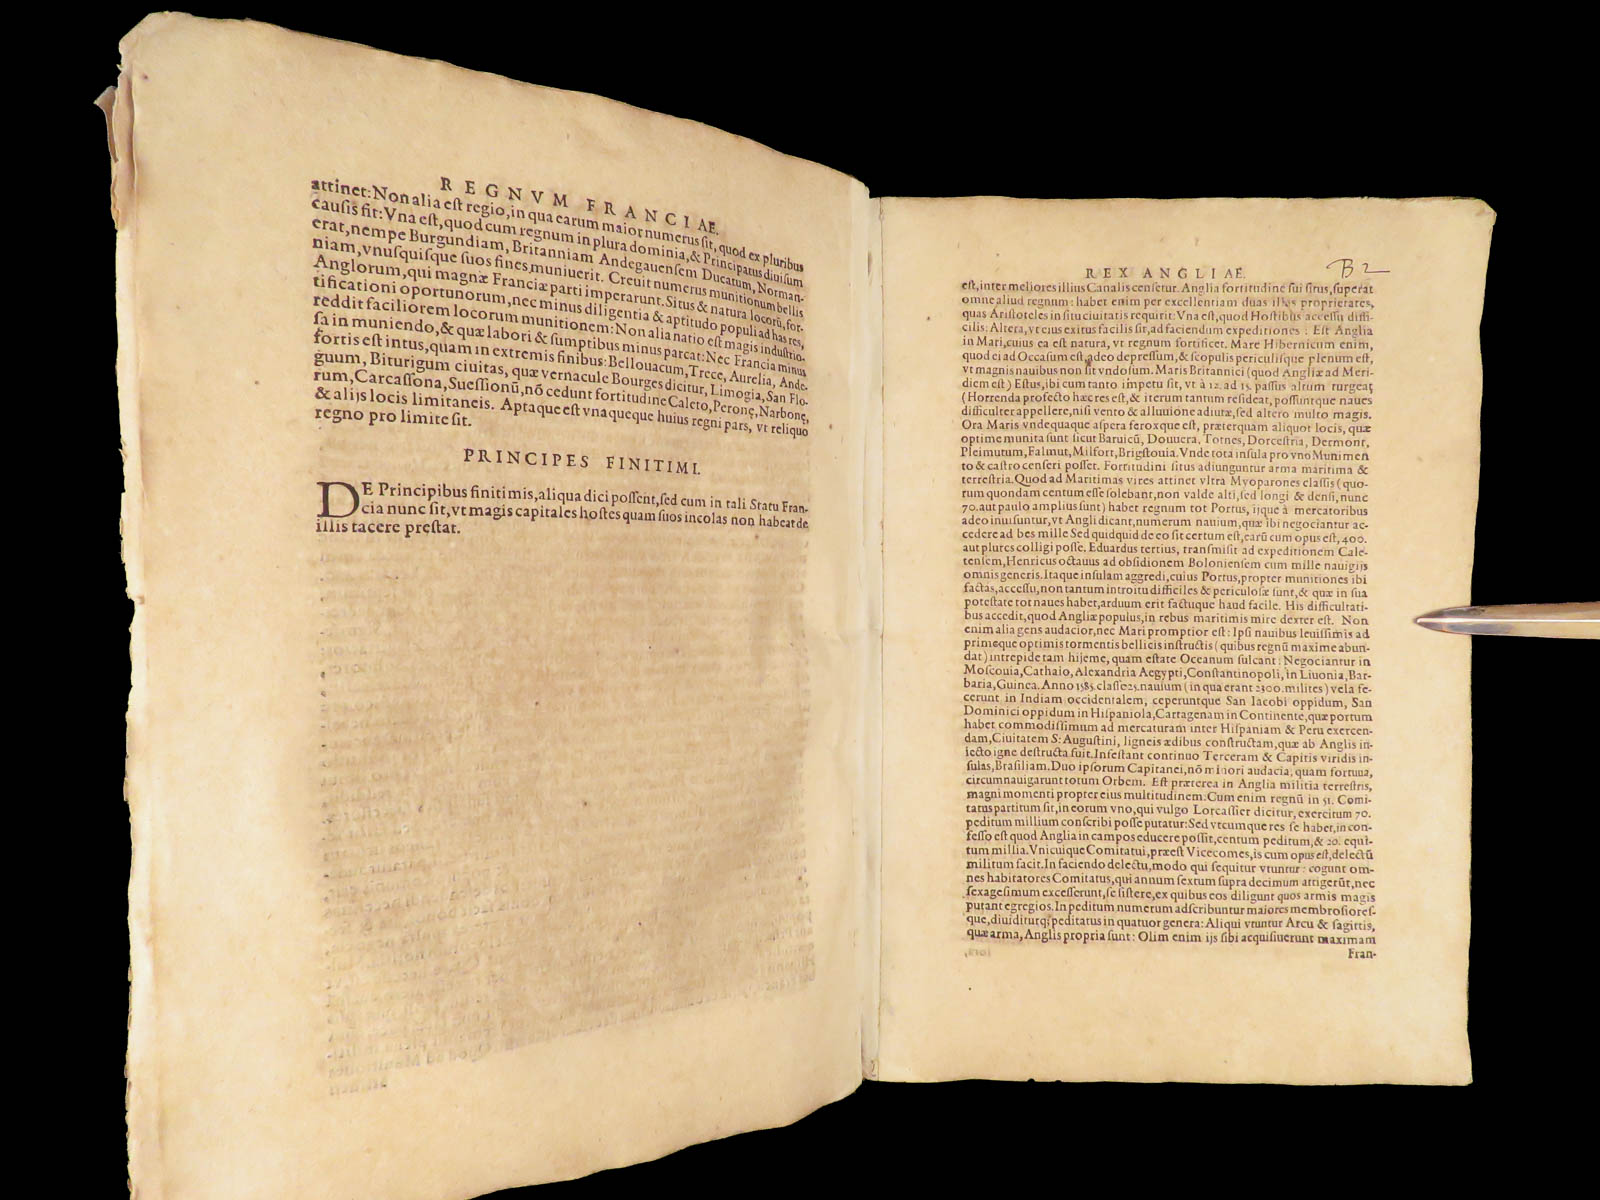 REGNVM FRANCIAE.
attinet: Non alia est regio, in qua earum maior numerus sit, quod ex pluribus
causis fit: Vna est, quod cum regnum in plura dominia, & Principatus diuisum
erat, nempe Burgundiam, Britanniam Andegauensem Ducatum, Norman-
niam, vnusquisque suos fines muniuerit. Creuit numerus munitionum bellis
Anglorum, qui magnæ Franciæ parti imperarunt. Situs & natura locorū, for-
tificationi oportunorum, nec minus diligentia & aptitudo populi ad has res,
reddit faciliorem locorum munitionem: Non alia natio est magis industrio-
sa in muniendo, & quæ labori & sumptibus minus parcat: Nec Francia minus
fortis est intus, quam in extremis finibus: Bellouacum, Trece, Aurelia, Ande-
guum, Biturigum ciuitas, quæ vernacule Bourges dicitur, Limogia, San Flo-
rum, Carcassona, Suessionū, nō cedunt fortitudine Caleto, Peronę, Narbonę,
& alijs locis limitaneis. Apta que est vnaqueque huius regni pars, vt reliquo
regno pro limite sit.
PRINCIPES FINITIMI.
DE Principibus finitimis, aliqua dici possent, sed cum in tali Statu Fran-
cia nunc sit, vt magis capitales hostes quam suos incolas non habeat de
illis tacere prestat.
REX ANGLIAE.
B2
est, inter meliores illius Canalis censetur. Anglia fortitudine sui situs, superat
omne aliud regnum: habet enim per excellentiam duas illas proprietates,
quas Aristoteles in situ ciuitatis requirit: Vna est, quod Hostibus accessu diffi-
cilis: Altera, vt eius exitus facilis sit, ad faciendum expeditiones: Est Anglia
in Mari, cuius ea est natura, vt regnum fortificet. Mare Hibernicum enim,
quod ei ad Occasum est, adeo depressum, & scopulis periculisque plenum est,
vt magnis nauibus non sit vndosum. Maris Britannici (quod Angliæ ad Meri-
diem est) Estus, ibi cum tanto impetu fit, vt à 12. ad 15. passus altum turgeat
(Horrenda profecto hæc res est, & iterum tantum resideat, possuntque naues
difficulter appellere, nisi vento & alluuione adiutæ, sed altero multo magis.
Ora Maris vndequaque aspera feroxque est, præterquam aliquot locis, quæ
optime munita sunt sicut Baruicū, Douuera, Tornes, Dorcestria, Dermont,
Pleimutum, Falmut, Milfort, Brigstouia. Vnde tota insula pro vno Munimen
to & castro censeri posset. Fortitudini situs adiunguntur arma maritima &
terrestria. Quod ad Maritimas vires attinet vltra Myoparones classis (quo-
rum quondam centum esse solebant, non valde alti, sed longi & densi, nunc
70. aut paulo amplius sunt) habet regnum tot Portus, ijque à mercatoribus
adeo inuisuntur, vt Angli dicant, numerum nauium, quæ ibi negociantur ac-
cedere ad bes mille Sed quidquid de eo sit certum est, earū cum opus est, 400.
aut plures colligi posse. Eduardus tertius, transmisit ad expeditionem Cale-
tensem, Henricus octauus ad obsidionem Boloniensem cum mille nauigijs
omnis generis. Itaque insulam aggredi, cuius Portus, propter munitiones ibi
factas, accessu, non tantum introitu difficiles & periculosæ sunt, & quæ in sua
potestate tot naues habet, arduum erit factuque haud facile. His difficultati-
bus accedit, quod Angliæ populus, in rebus maritimis mire dexter est. Non
enim alia gens audacior, nec Mari promptior est: Ipsi nauibus leuissimis ad
primeque optimis tormentis bellicis instructis (quibus regnū maxime abun-
dat) intrepide tam hijeme, quam estate Oceanum sulcant: Negociantur in
Moscouia, Cathaio, Alexandria Aegypti, Constantinopoli, in Liuonia, Bar-
baria, Guinea. Anno 1585. classe 25. nauium (in qua erant 2300. milites) vela fe-
cerunt in Indiam occidentalem, ceperuntque San Iacobi oppidum, San
Dominici oppidum in Hispaniola, Cartagenam in Continente, quæ portum
habet commodissimum ad mercaturam inter Hispaniam & Peru exercen-
dam, Ciuitatem S: Augustini, ligneis ædibus constructam, quæ ab Anglis in-
iecto igne destructa fuit. Infestant continuo Terceram & Capitis viridis in-
sulas, Brasiliam. Duo ipsorum Capitanei, nō minori audacia, quam fortuna,
circumnauigarunt totum Orbem. Est præterea in Anglia militia terrestris,
magni momenti propter eius multitudinem: Cum enim regnū in 51. Comi-
tatus partitum sit, in eorum vno, qui vulgo Lorcassier dicitur, exercitum 70.
peditum millium conscribi posse putatur: Sed vtcumque res se habet, in con-
fesso est quod Anglia in campos educere possit, centum peditum, & 20. equi-
tum millia. Vnicuique Comitatui, præest Vicecomes, is cum opus est, delectū
militum facit. In faciendo delectu, modo qui sequitur vtuntur: cogunt om-
nes habitatores Comitatus, qui annum sextum supra decimum attigerūt, nec
sexagesimum excesserunt, se sistere, ex quibus eos diligunt quos armis magis
putant egregios. In peditum numerum adscribuntur maiores membrosiores-
que, diuiditurq; peditatus in quatuor genera: Aliqui vtuntur Arcu & sagittis,
quæ arma, Anglis propria sunt: Olim enim ijs sibi acquisiuerunt maximam
Fran-